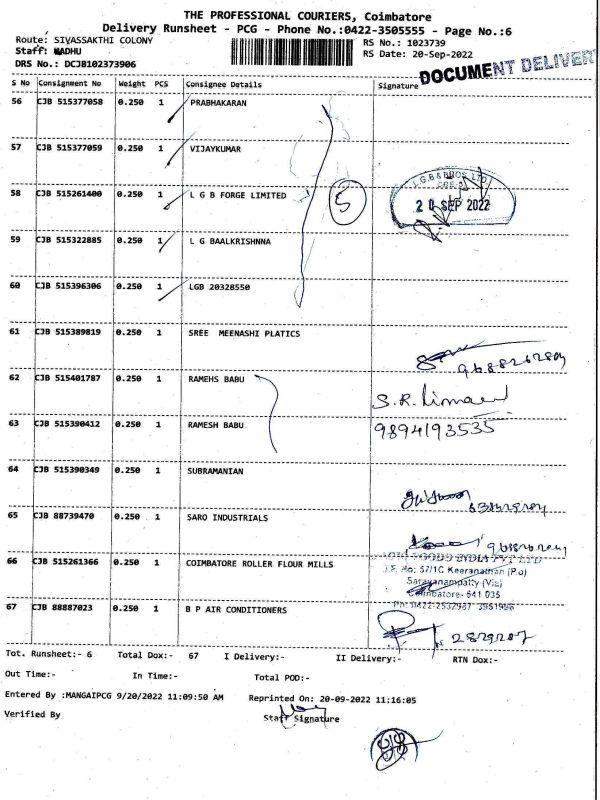 THE PROFESSIONAL COURIERS, Coimbatore
Delivery Runsheet - PCG - Phone No.:0422-3505555 - Page No.:6
Route: SIVASSAKTHI COLONY
RS No.: 1023739
Staff: MADHU
RS Date: 20-Sep-2022
DRS No.: DCJB102373906
DOCUMENT DELIVER
S No Consignment No Weight PCS Consignee Details Signature
56 CJB 515377058 0.250 1 PRABHAKARAN
57 CJB 515377059 0.250 1 VIJAYKUMAR
58 CJB 515261400 0.250 1 L G B FORGE LIMITED
5
L.G.B & BROS LTD
20 SEP 2022
59 CJB 515322885 0.250 1 L G BAALKRISHNNA
60 CJB 515396306 0.250 1 LGB 20328550
61 CJB 515389819 0.250 1 SREE MEENASHI PLATICS
62 CJB 515401787 0.250 1 RAMEHS BABU
S.R.
63 CJB 515390412 0.250 1 RAMESH BABU
9894193535
64 CJB 515390349 0.250 1 SUBRAMANIAN
65 CJB 88739470 0.250 1 SARO INDUSTRIALS
66 CJB 515261366 0.250 1 COIMBATORE ROLLER FLOUR MILLS
INDIA PVT LTD
S.F. No: 57/1C Keeranatham (P.o)
Saravanampatty (Via)
Coimbatore- 641 035
67 CJB 88887023 0.250 1 B P AIR CONDITIONERS
Tot. Runsheet:- 6 Total Dox:- 67 I Delivery:- II Delivery:- RTN Dox:-
Out Time:- In Time:- Total POD:-
Entered By :MANGAIPCG 9/20/2022 11:09:50 AM Reprinted On: 20-09-2022 11:16:05
Verified By Staff Signature